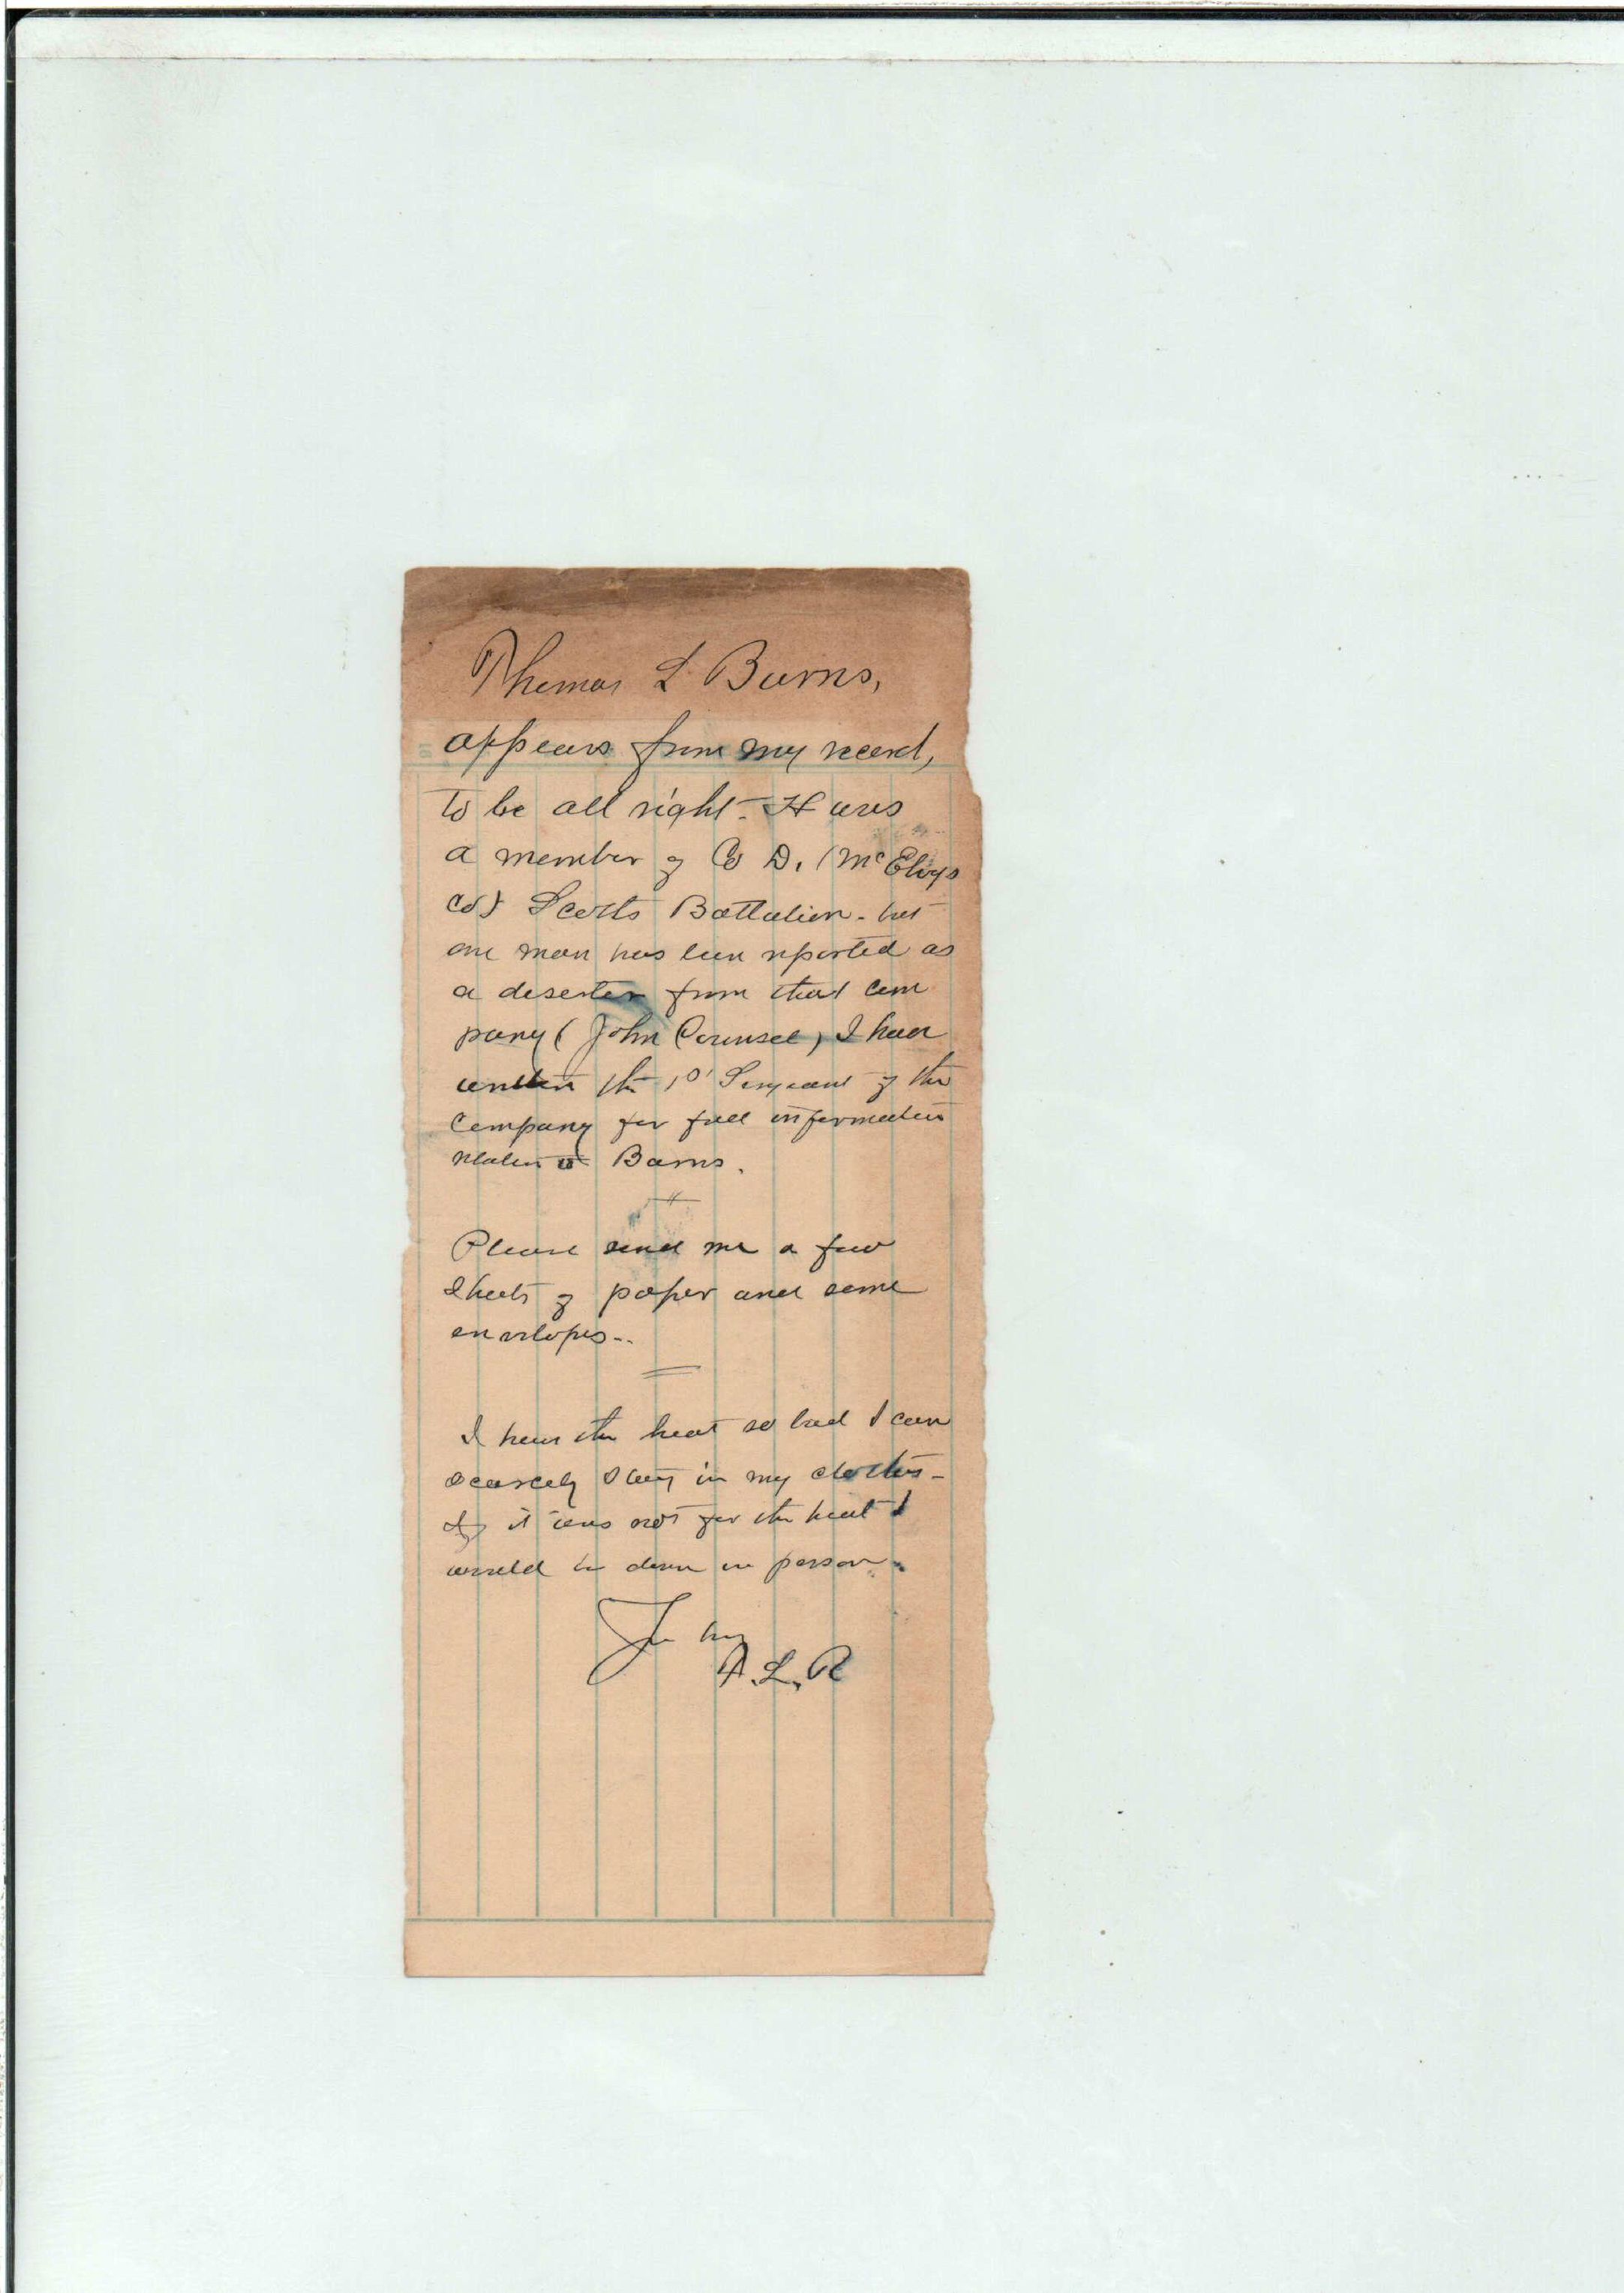 Thomas L Burns,
appears from my record,
to be all right - H was
a member of Co D. (McElvys
Co) Scotts Battalion - but
one man has been reported as
a deserter from that com
pany (John Counsel) I have
written the 1st Sergeant of the
Company for full information
relative to Barns.
Please send me a few
sheets of paper and some
envelopes --
I have the heat so bad I can
scarcely stay in my clothes -
If it was not for the heat I
would be down in person.
L. R